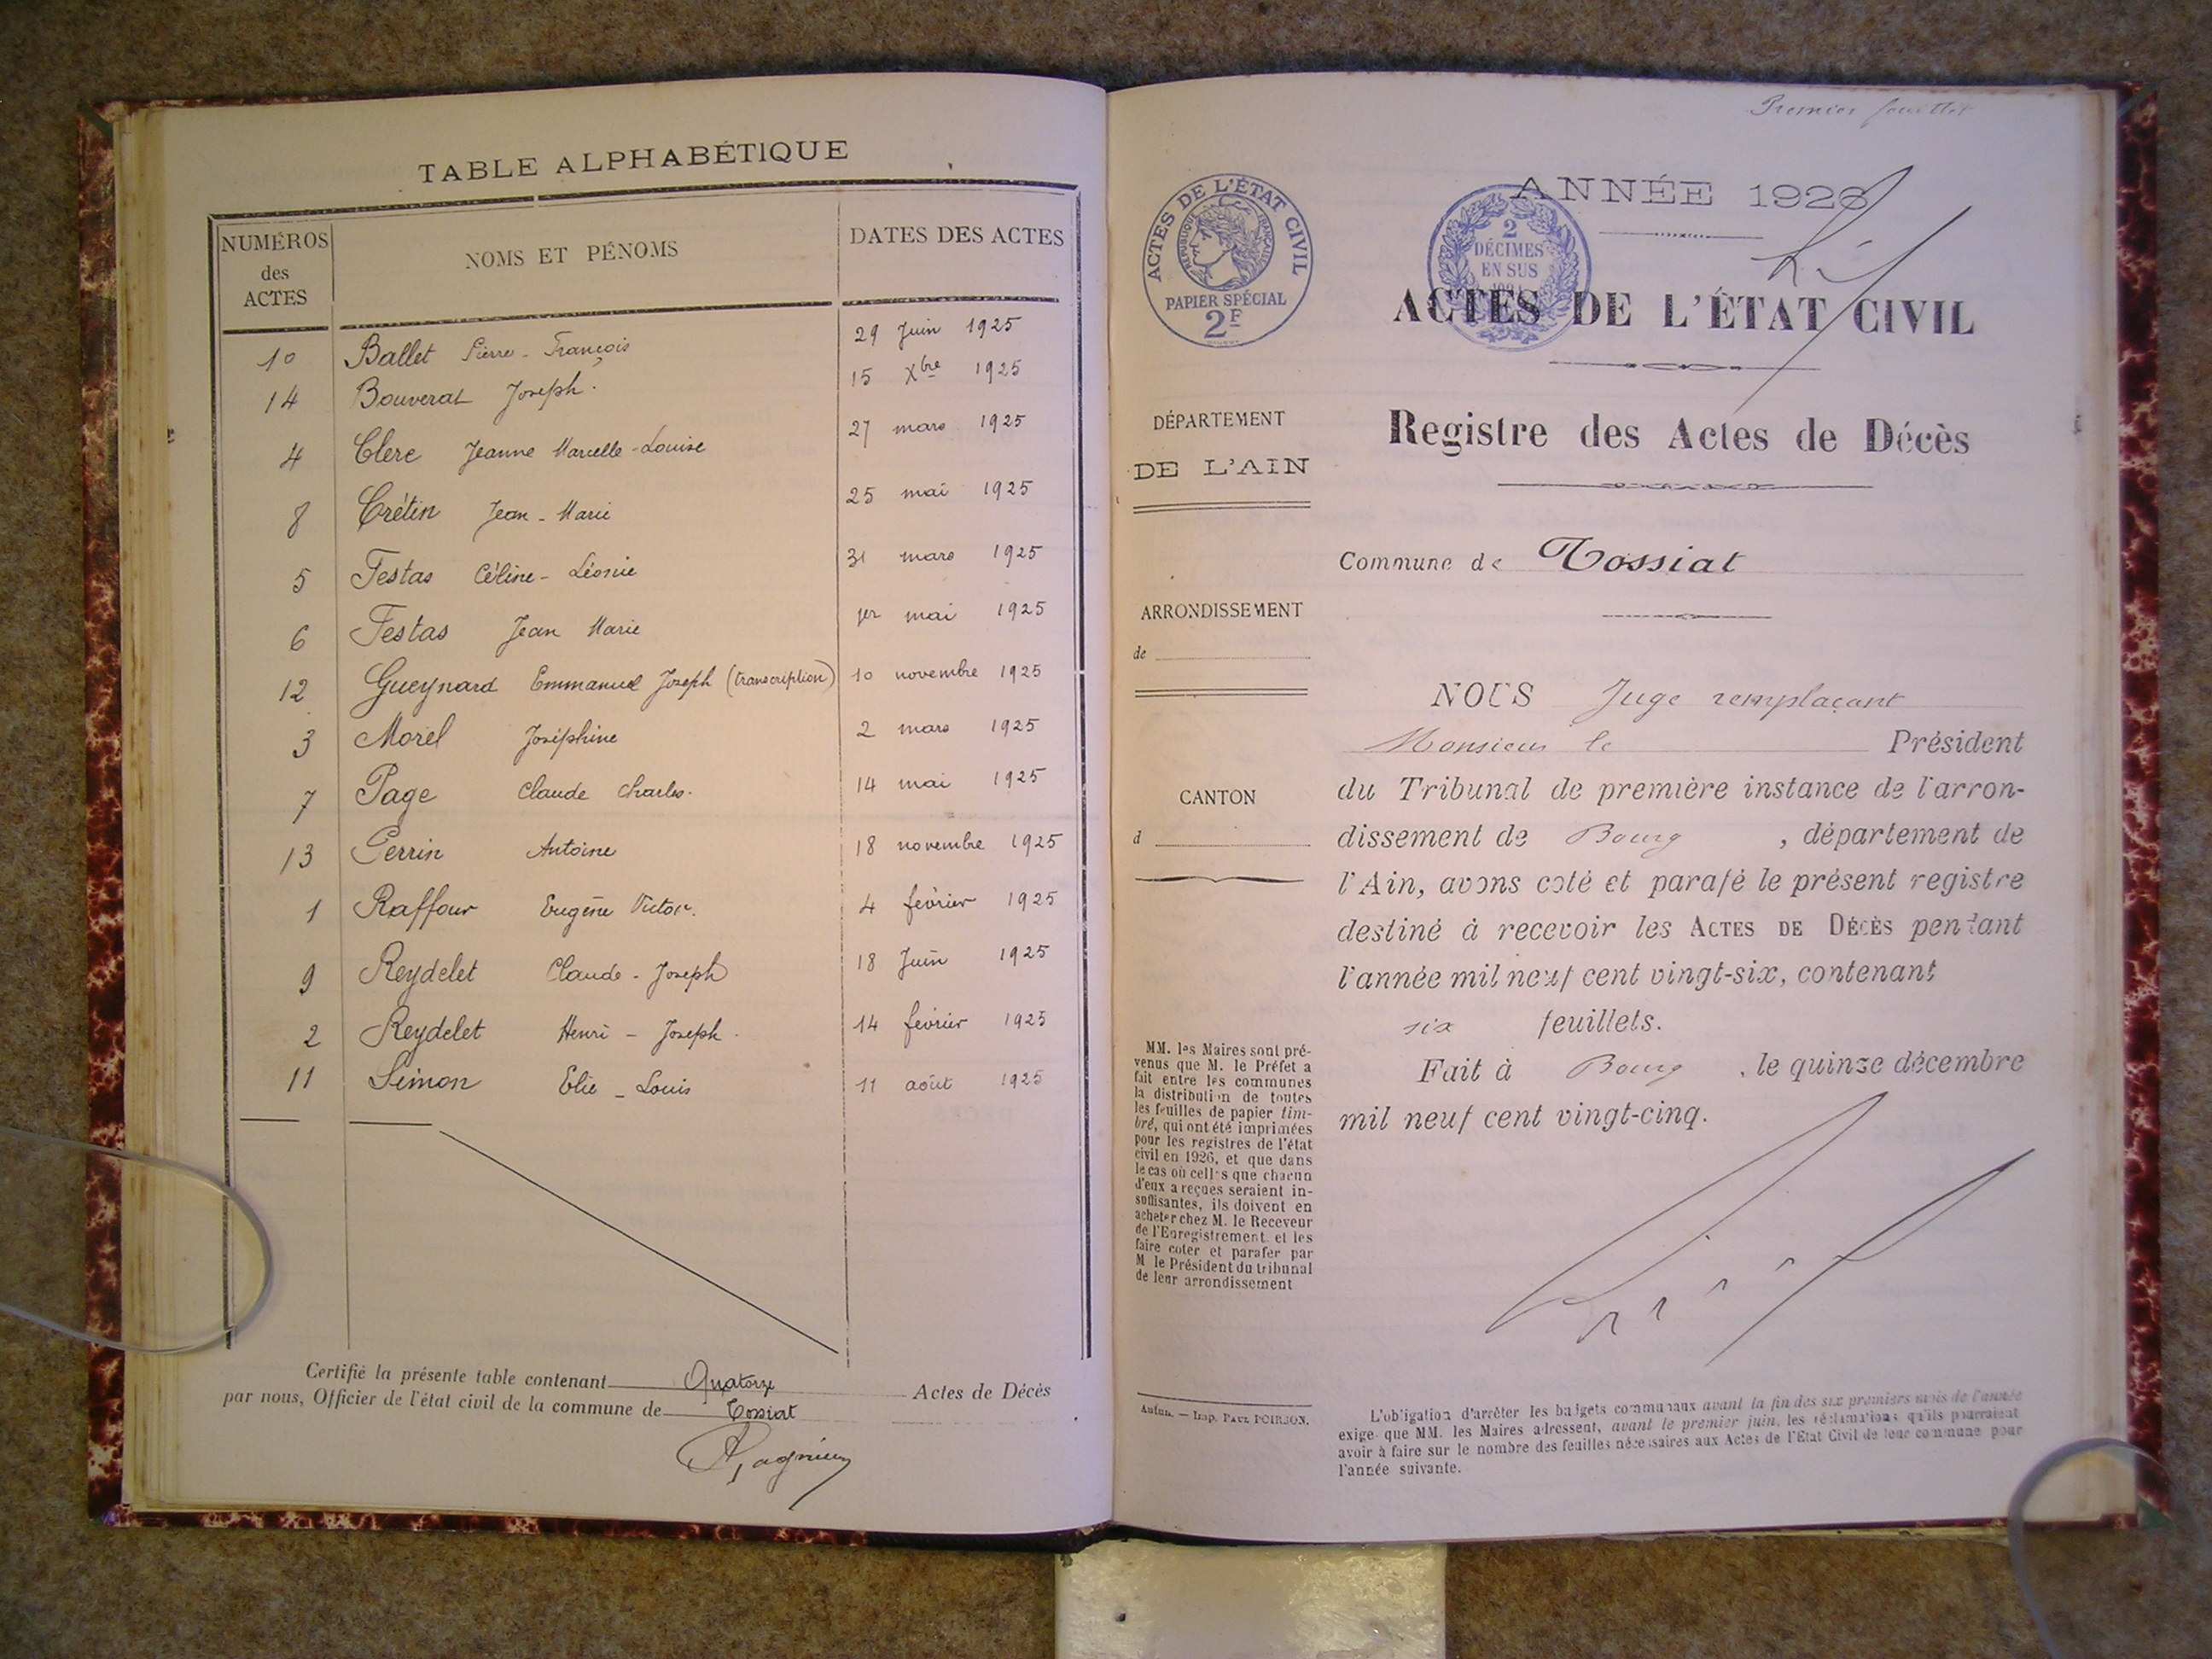 TABLE ALPHABÉTIQUE
NUMÉROS des ACTES
NOMS ET PÉNOMS
DATES DES ACTES
10 Ballet Pierre - François 29 Juin 1925
14 Bouverat Joseph. 15 Xbre 1925
4 Clerc Jeanne Marcelle-Louise 27 mars 1925
8 Crétin Jean - Marie 25 mai 1925
5 Festas Céline - Léonie 31 mars 1925
6 Festas Jean Marie 1er mai 1925
12 Gueynard Emmanuel Joseph (transcription) 10 novembre 1925
3 Morel Joséphine 2 mars 1925
7 Page Claude Charles. 14 mai 1925
13 Perrin Antoine 18 novembre 1925
1 Raffour Eugène Victor. 4 février 1925
9 Reydelet Claude - Joseph 18 Juin 1925
2 Reydelet Henri - Joseph. 14 février 1925
11 Simon Elie - Louis 11 août 1925
Certifié la présente table contenant Quatorze Actes de Décès
par nous, Officier de l'état civil de la commune de Tossiat
Premier feuillet
ANNÉE 1926
ACTES DE L'ÉTAT CIVIL
RÉPUBLIQUE FRANÇAISE
PAPIER SPÉCIAL
2F
2
DÉCIMES
EN SUS
ACTES DE L'ÉTAT CIVIL
Registre des Actes de Décès
DÉPARTEMENT
DE L'AIN
Commune de Tossiat
ARRONDISSEMENT
de
CANTON
d
NOUS Juge remplaçant
Monsieur le Président
du Tribunal de première instance de l'arron-
dissement de Bourg , département de
l'Ain, avons coté et parafé le présent registre
destiné à recevoir les ACTES DE DÉCÈS pendant
l'année mil neuf cent vingt-six, contenant
six feuillets.
Fait à Bourg , le quinze décembre
mil neuf cent vingt-cinq.
MM. les Maires sont pré-
venus que M. le Préfet a
fait entre les communes
la distribution de toutes
les feuilles de papier tim-
bré, qui ont été imprimées
pour les registres de l'état
civil en 1926, et que dans
le cas où celles que chacun
d'eux a reçues seraient in-
suffisantes, ils doivent en
acheter chez M. le Receveur
de l'Enregistrement et les
faire coter et parafer par
M le Président du tribunal
de leur arrondissement
Autun. — Imp. PAUL POIRSON.
L'obligation d'arrêter les budgets communaux avant la fin des six premiers mois de l'année
exige que MM. les Maires adressent, avant le premier juin, les réclamations qu'ils pourraient
avoir à faire sur le nombre des feuilles nécessaires aux Actes de l'État Civil de leur commune pour
l'année suivante.